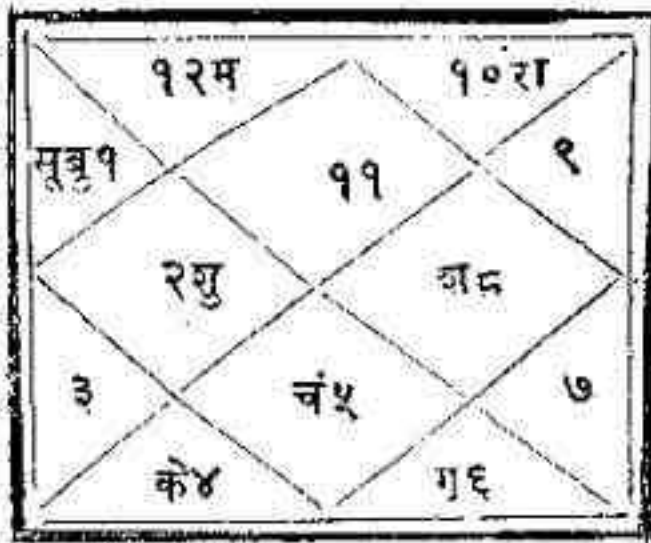 १२म
१०रा
सूबु१
११
९
२शु
श८
३
चं५
७
के४
गु६